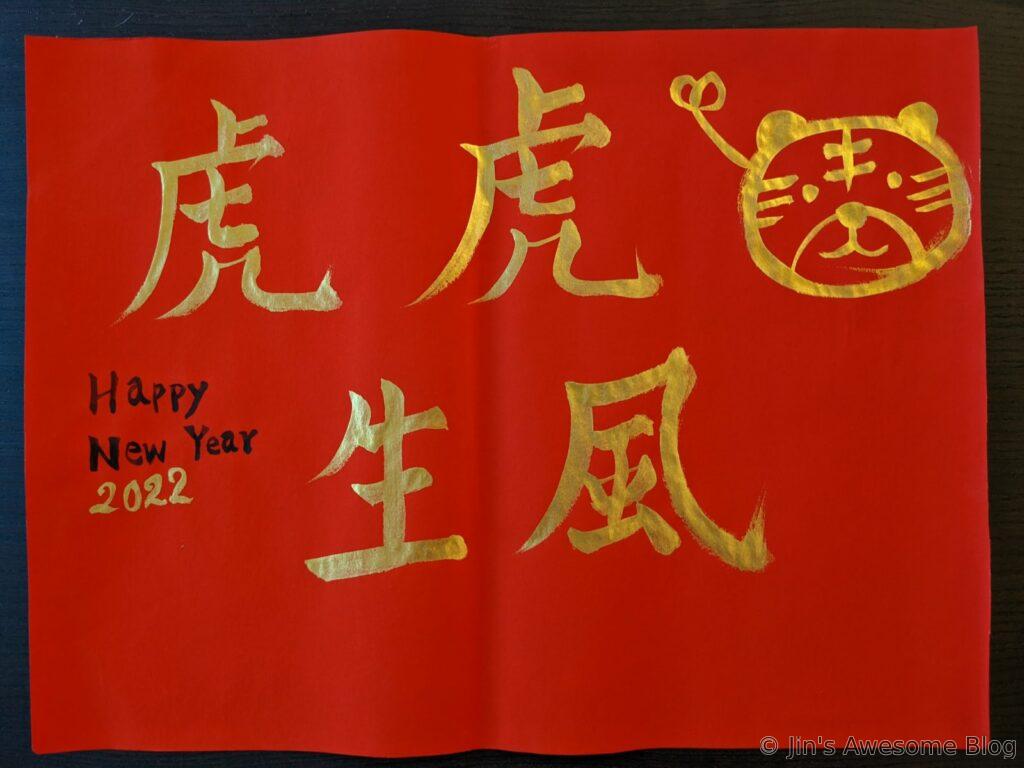 虎虎
生風
Happy
New Year
2022
© Jin's Awesome Blog